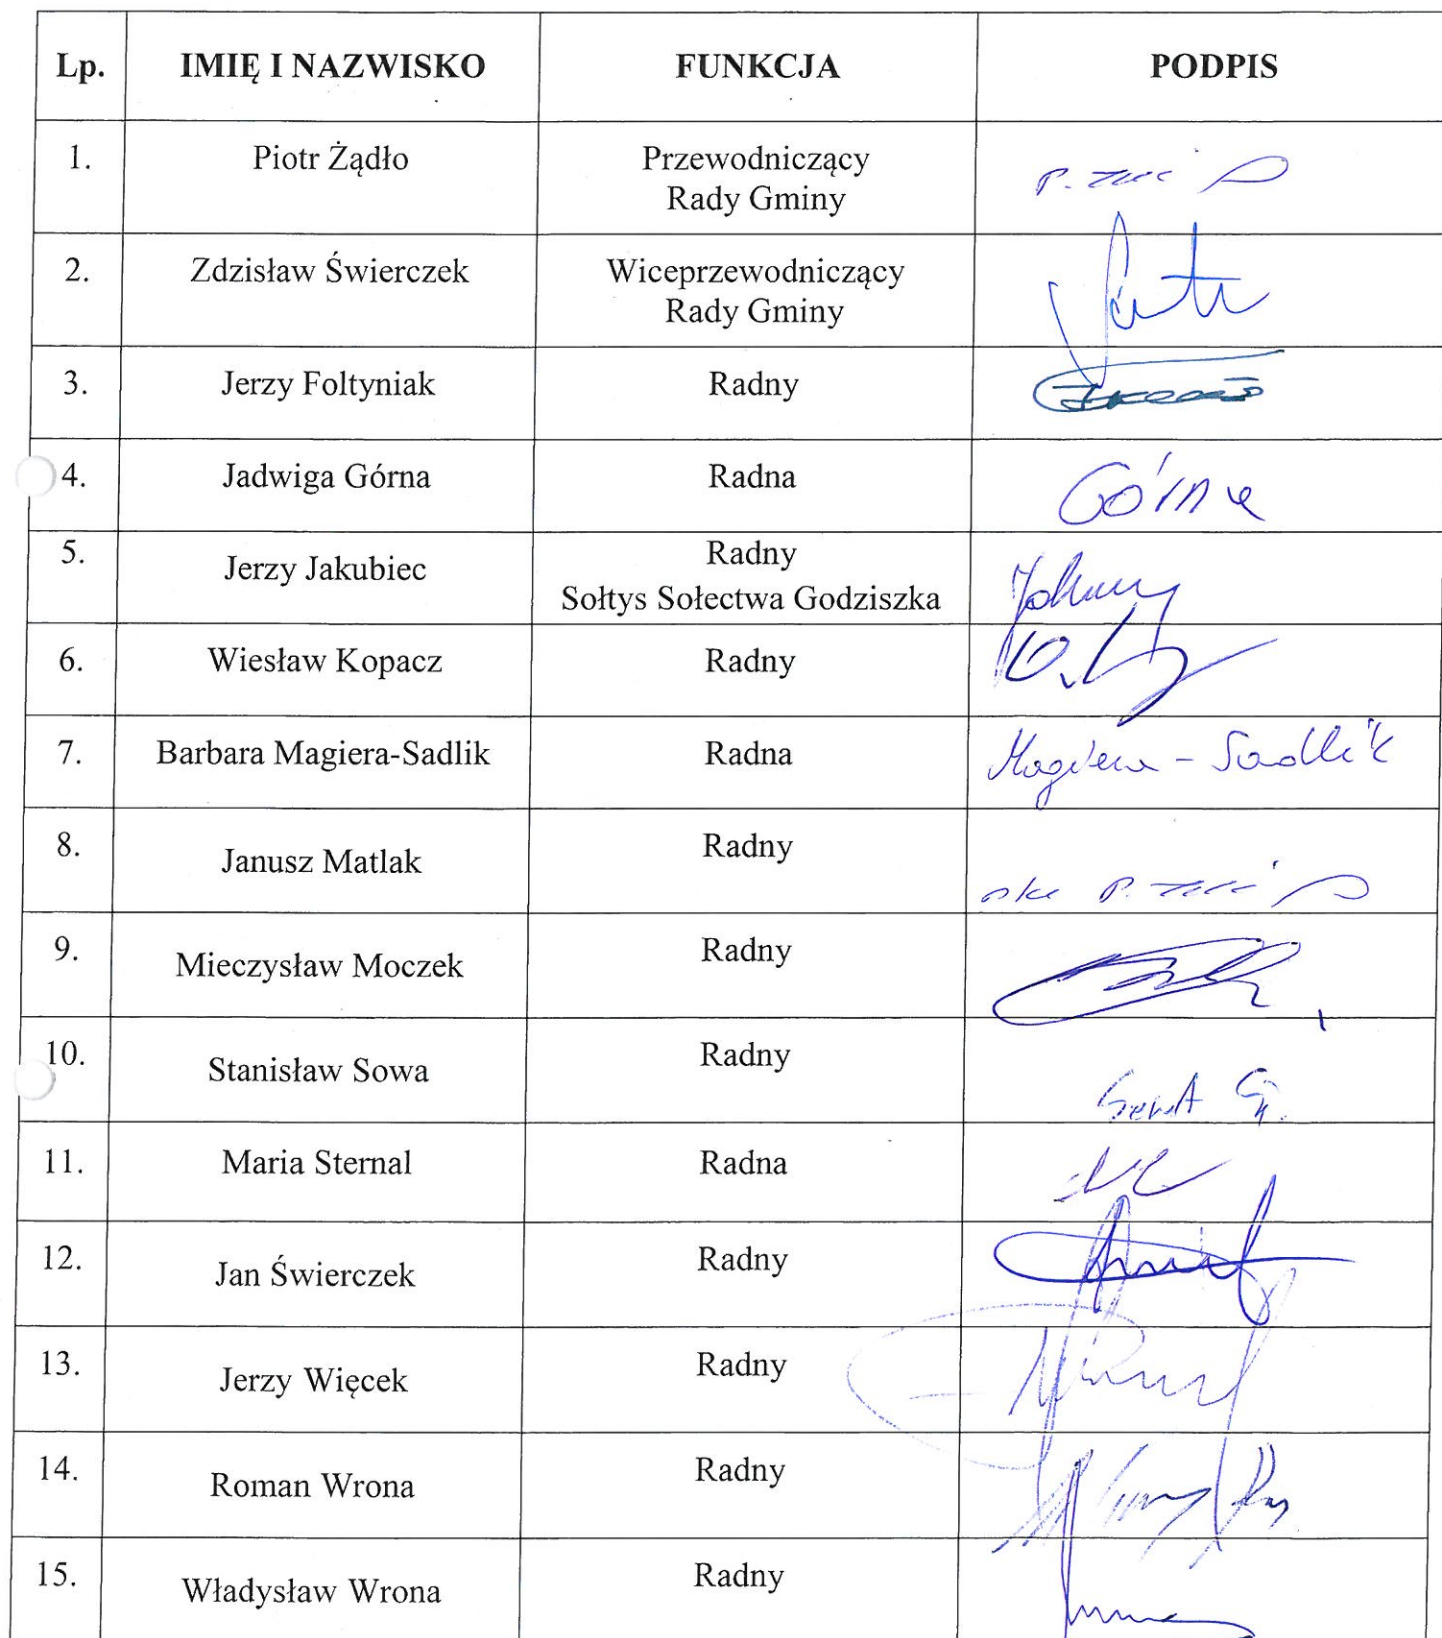 Lp. IMIĘ I NAZWISKO FUNKCJA PODPIS
1. Piotr Żądło Przewodniczący
Rady Gminy
2. Zdzisław Świerczek Wiceprzewodniczący
Rady Gminy
3. Jerzy Foltyniak Radny
4. Jadwiga Górna Radna Górna
5. Jerzy Jakubiec Radny
Sołtys Sołectwa Godziszka
6. Wiesław Kopacz Radny
7. Barbara Magiera-Sadlik Radna Magiera - Sadlik
8. Janusz Matlak Radny
9. Mieczysław Moczek Radny
10. Stanisław Sowa Radny
11. Maria Sternal Radna
12. Jan Świerczek Radny
13. Jerzy Więcek Radny
14. Roman Wrona Radny
15. Władysław Wrona Radny